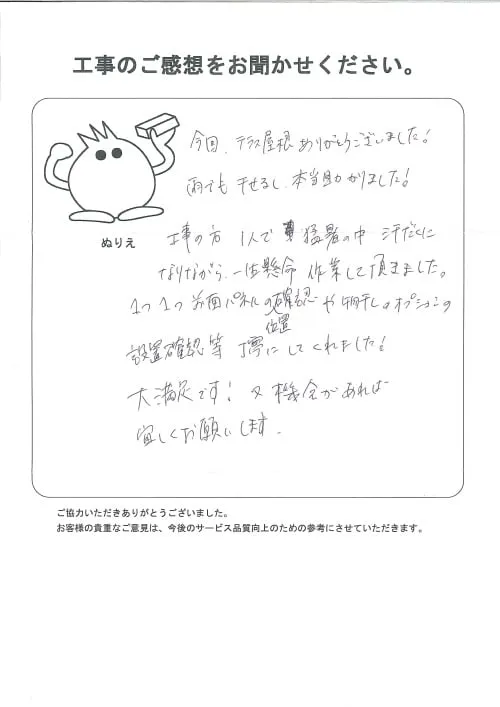 工事のご感想をお聞かせください。
今回、テラス屋根ありがとうございました!
雨でも干せるし、本当助かりました!
ぬりえ
工事の方 1人で 猛暑の中 汗だくに
なりながら、一生懸命 作業して頂きました。
1つ1つ 前面パネルの確認や物干しのオプションの
位置
設置確認等 丁寧にしてくれました!
大満足です! 又機会があれば
宜しくお願いします。
ご協力いただきありがとうございました。
お客様の貴重なご意見は、今後のサービス品質向上のための参考にさせていただきます。